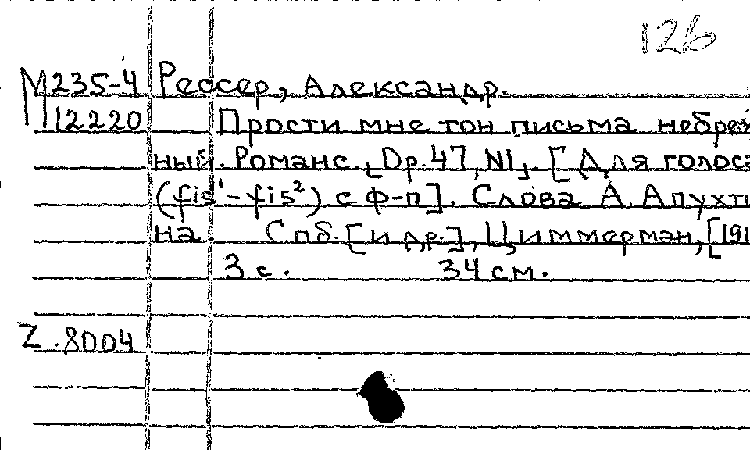 126
М235-4 Рессер, Александр.
М12220 Прости мне тон письма небреж
ный. Романс. [Op. 47, N1]. [Для голоса
(fis¹-fis²) с ф-п]. Слова А. Апухти
на. Спб. [и др.], Циммерман, [191
3 с. 34 см.
Z.8004